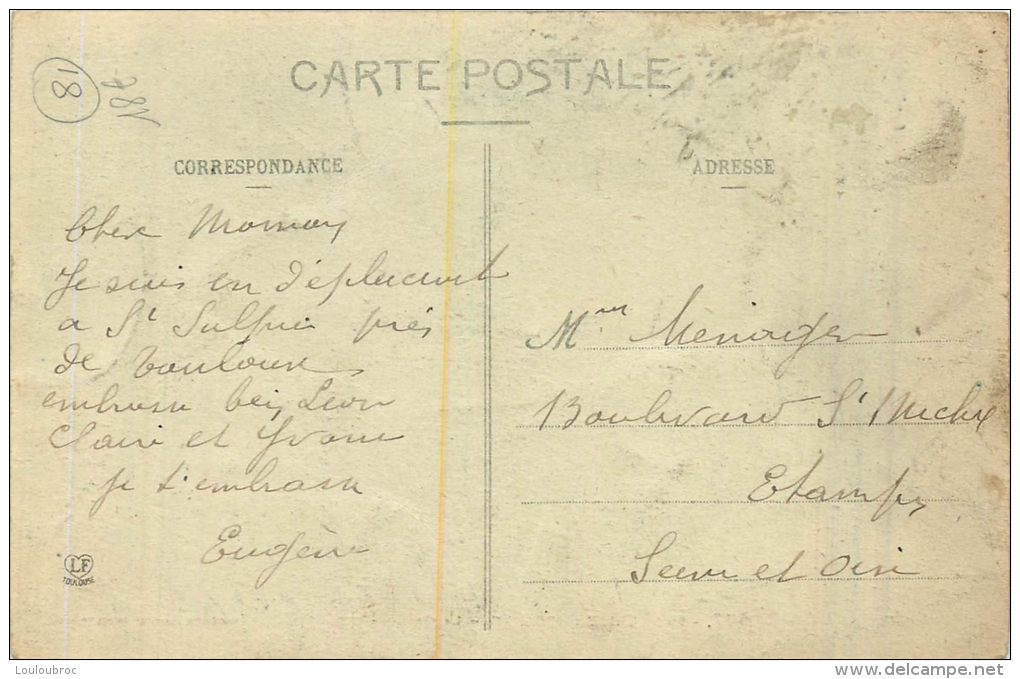 18
CARTE POSTALE
CORRESPONDANCE
Chere Maman
Je suis en déplacement
a St Sulpice près
de Toulouse
embrasse bien Léon
Claire et Yvonne
je t'embrasse
Eugène
LF
TOULOUSE
ADRESSE
Mme Menager
Boulevard St Michel
Etampes
Seine et Oise
Louloubroc
www.delcampe.net